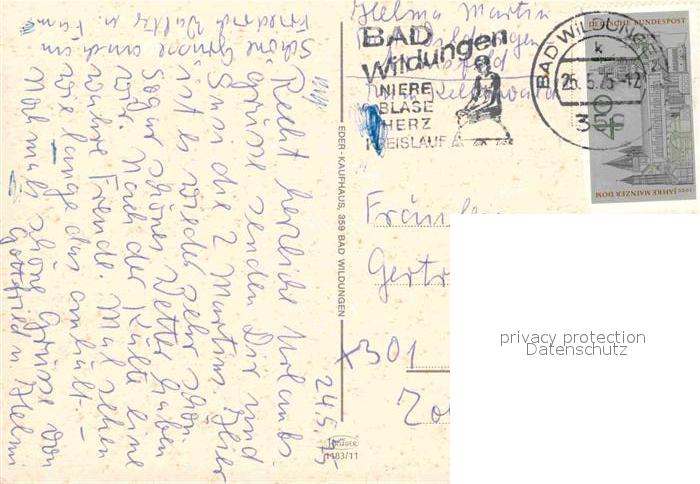 Helma Martin
Bad Wildungen
BAD
Wildungen
NIERE
BLASE
HERZ
KREISLAUF
BAD WILDUNGEN
k
26.5.75-12
DEUTSCHE BUNDESPOST
1000 JAHRE MAINZER DOM
EDER-KAUFHAUS, 359 BAD WILDUNGEN
KRÜGER
1183/11
24.5.75
Recht herzliche Urlaubs-
grüsse senden Dir und
Susi die 2 Martins. Hier
ist es wieder sehr schön
Sogar schönes Wetter haben
wir. Nach der Kälte eine
wahre Freude. Mal sehen
wie lange das anhält-
Nochmals schöne Grüsse von
Gottfried u. Helma
Schöne Grüsse auch an
Friedrich Walter u. Fam
Fräul
Gertr
301
privacy protection
Datenschutz